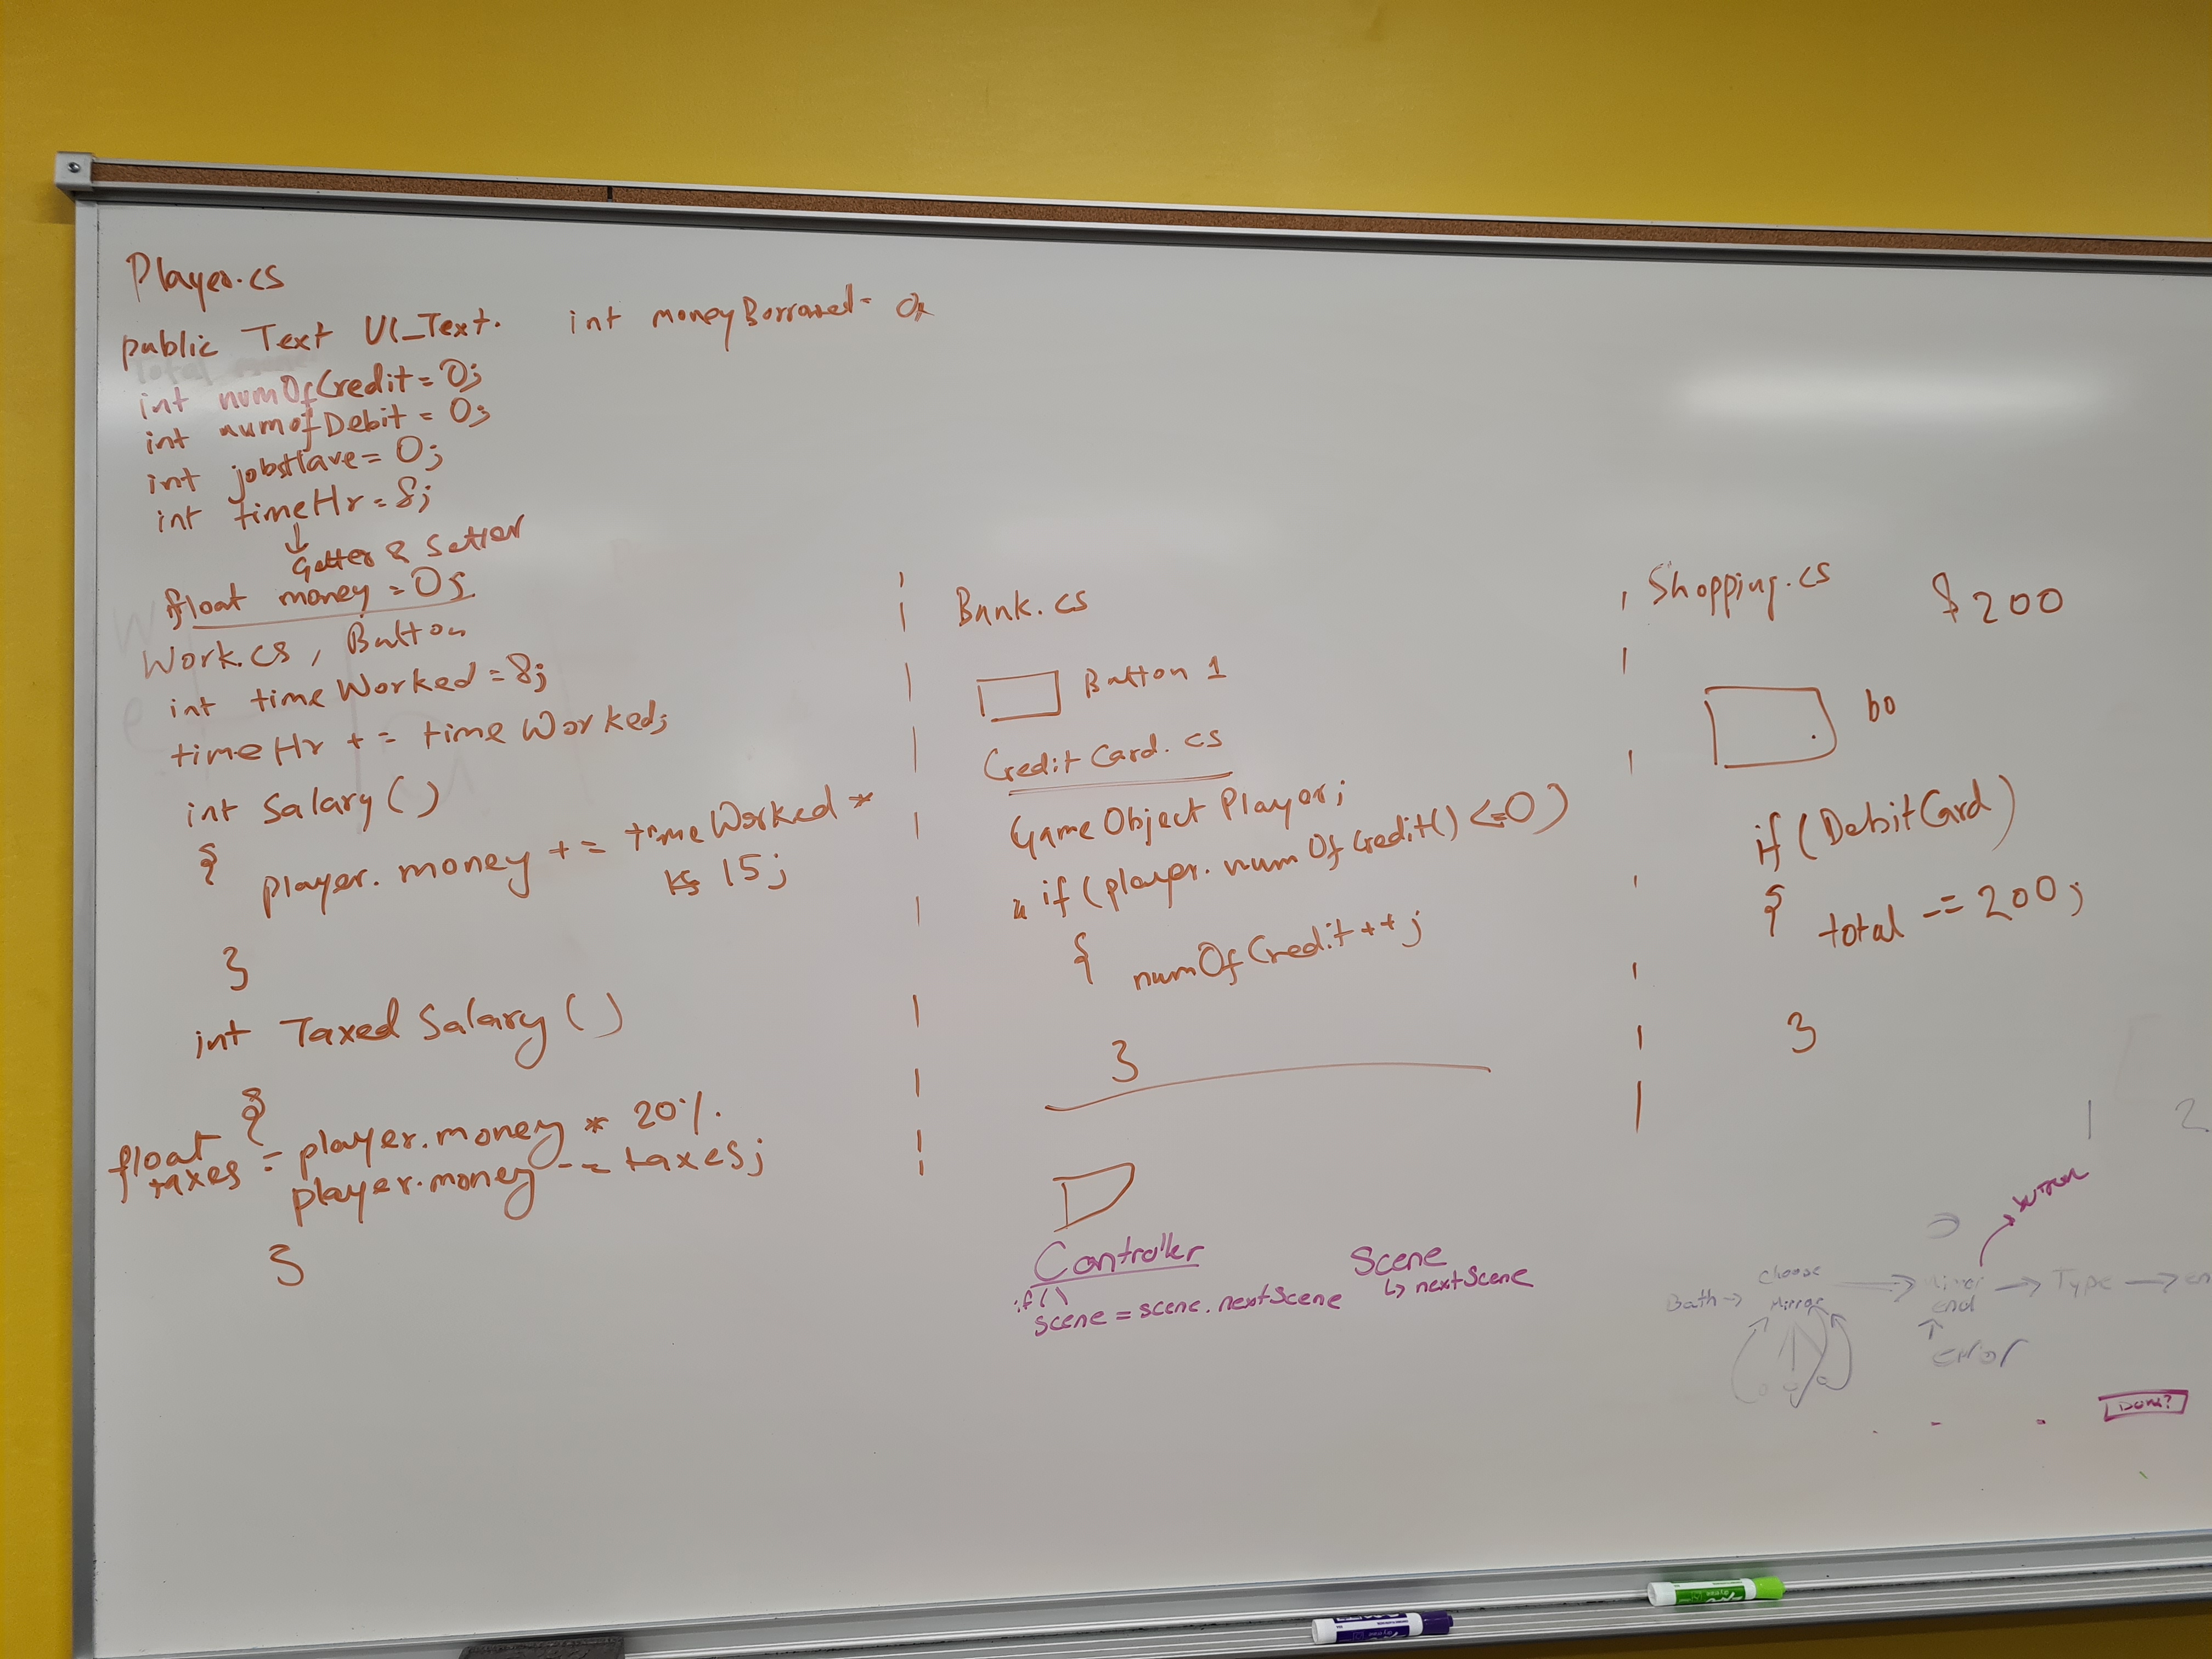 Player.cs
public Text UI_Text. int moneyBorrowed = 0;
int numOfCredit = 0;
int numofDebit = 0;
int jobsHave = 0;
int timeHr = 8;
↓
Getter & Setter
float money = 0;
Work.cs, Button
int timeWorked = 8;
timeHr += timeWorked;
int Salary()
{
player.money += timeWorked *
15;
}
int Taxed Salary()
{
float taxes = player.money * 20%.
player.money -= taxes;
}
Bank.cs
Button 1
Credit Card.cs
GameObject Player;
if (player.numOfCredit() <=0)
{
numOfCredit++;
}
Controller
if()
scene = scene.nextScene
Scene
↳ nextScene
Shopping.cs
$200
bo
if (DebitCard)
{
total -= 200;
}
1 2
Bath → Choose Mirror → Mirror end → Type → en
↑
error
Done?